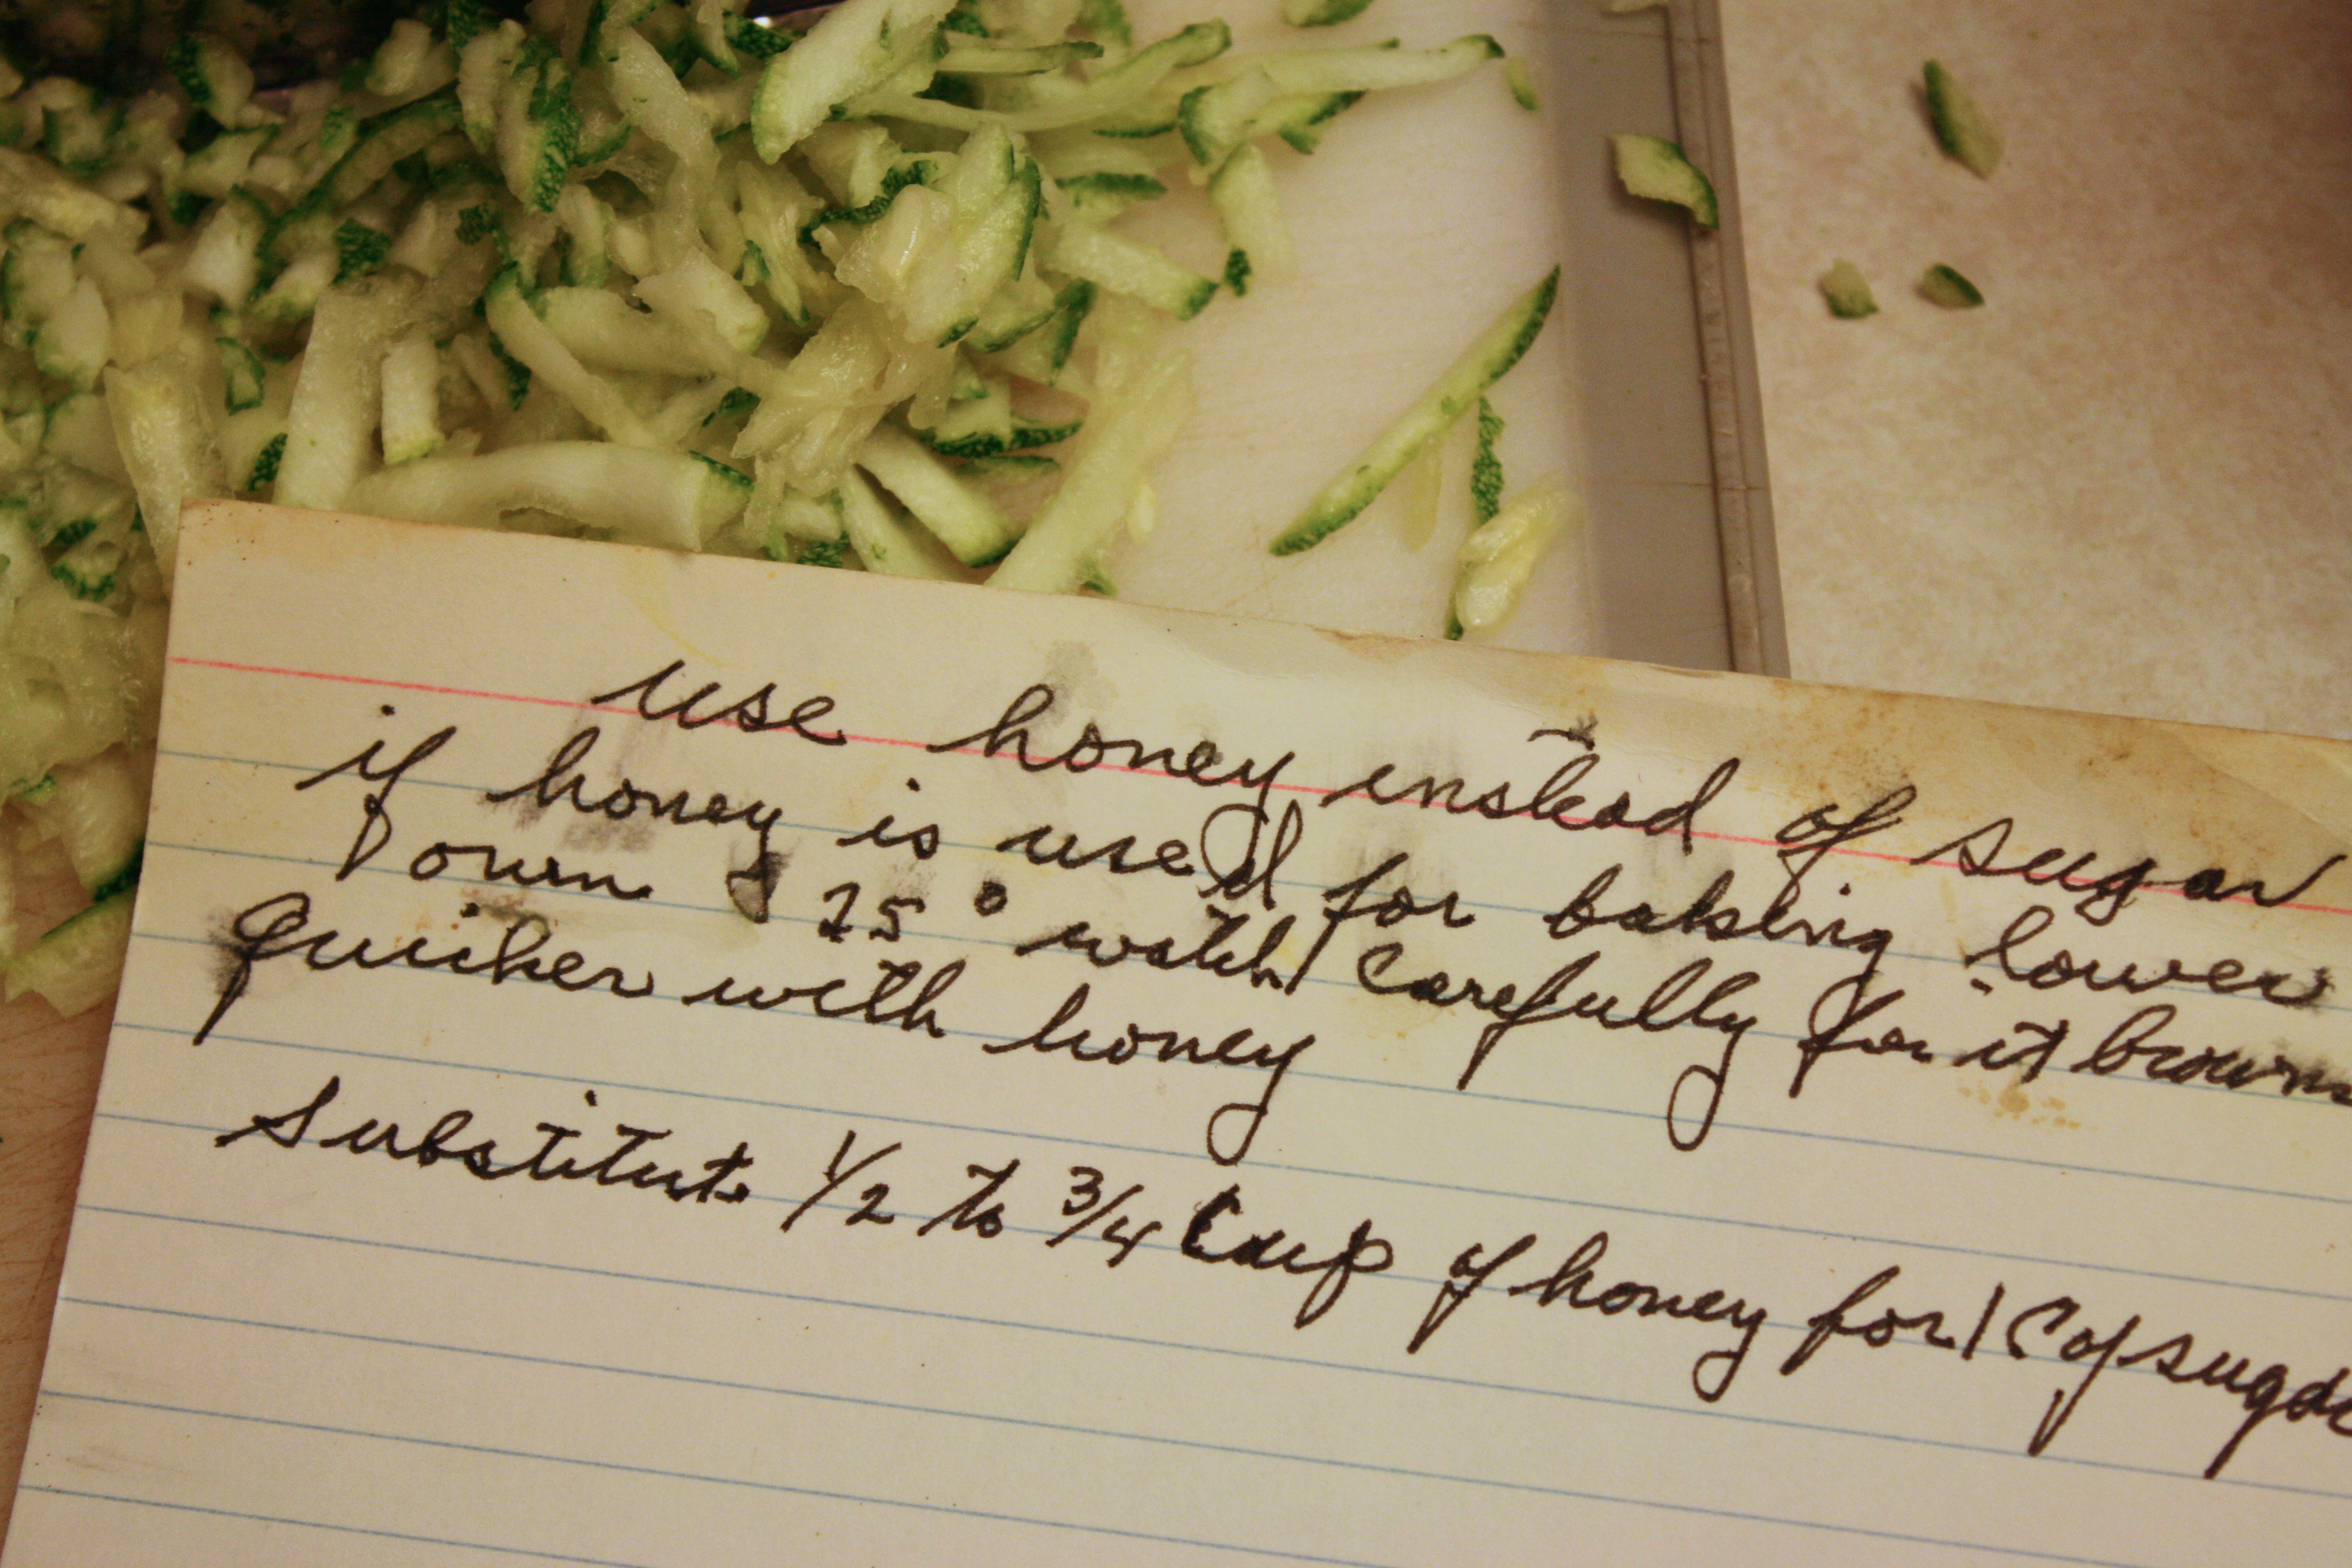 use honey instead of sugar
if honey is used for baking lower
oven 25° watch carefully for it browns
quicker with honey
Substitute 1/2 to 3/4 Cup of honey for 1 C of sugar